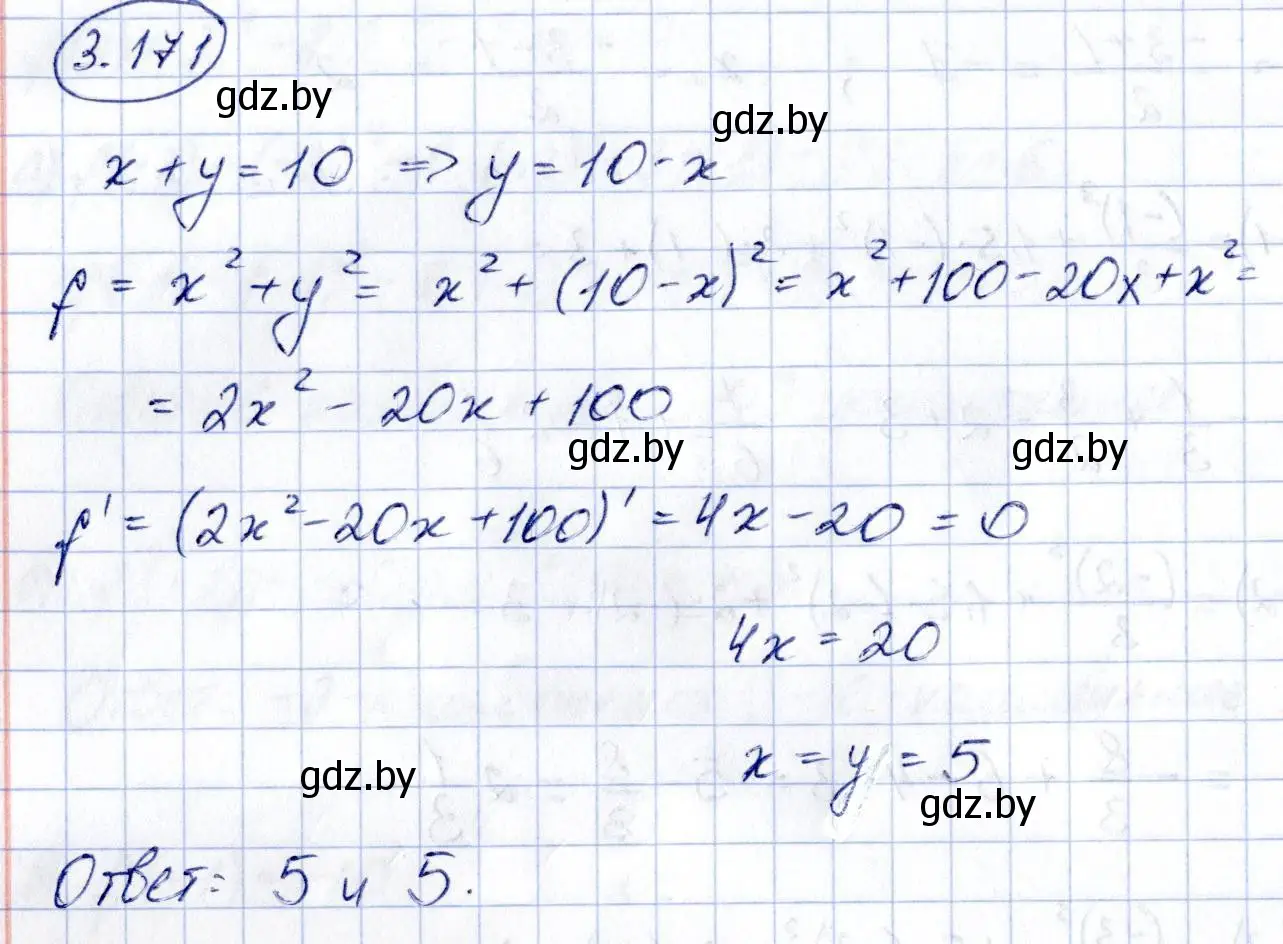 3.171
gdz.by
gdz.by
x + y = 10 => y = 10 - x
f = x² + y² = x² + (10 - x)² = x² + 100 - 20x + x² =
= 2x² - 20x + 100
gdz.by
gdz.by
f' = (2x² - 20x + 100)' = 4x - 20 = 0
4x = 20
x = y = 5
gdz.by
gdz.by
Ответ: 5 и 5.